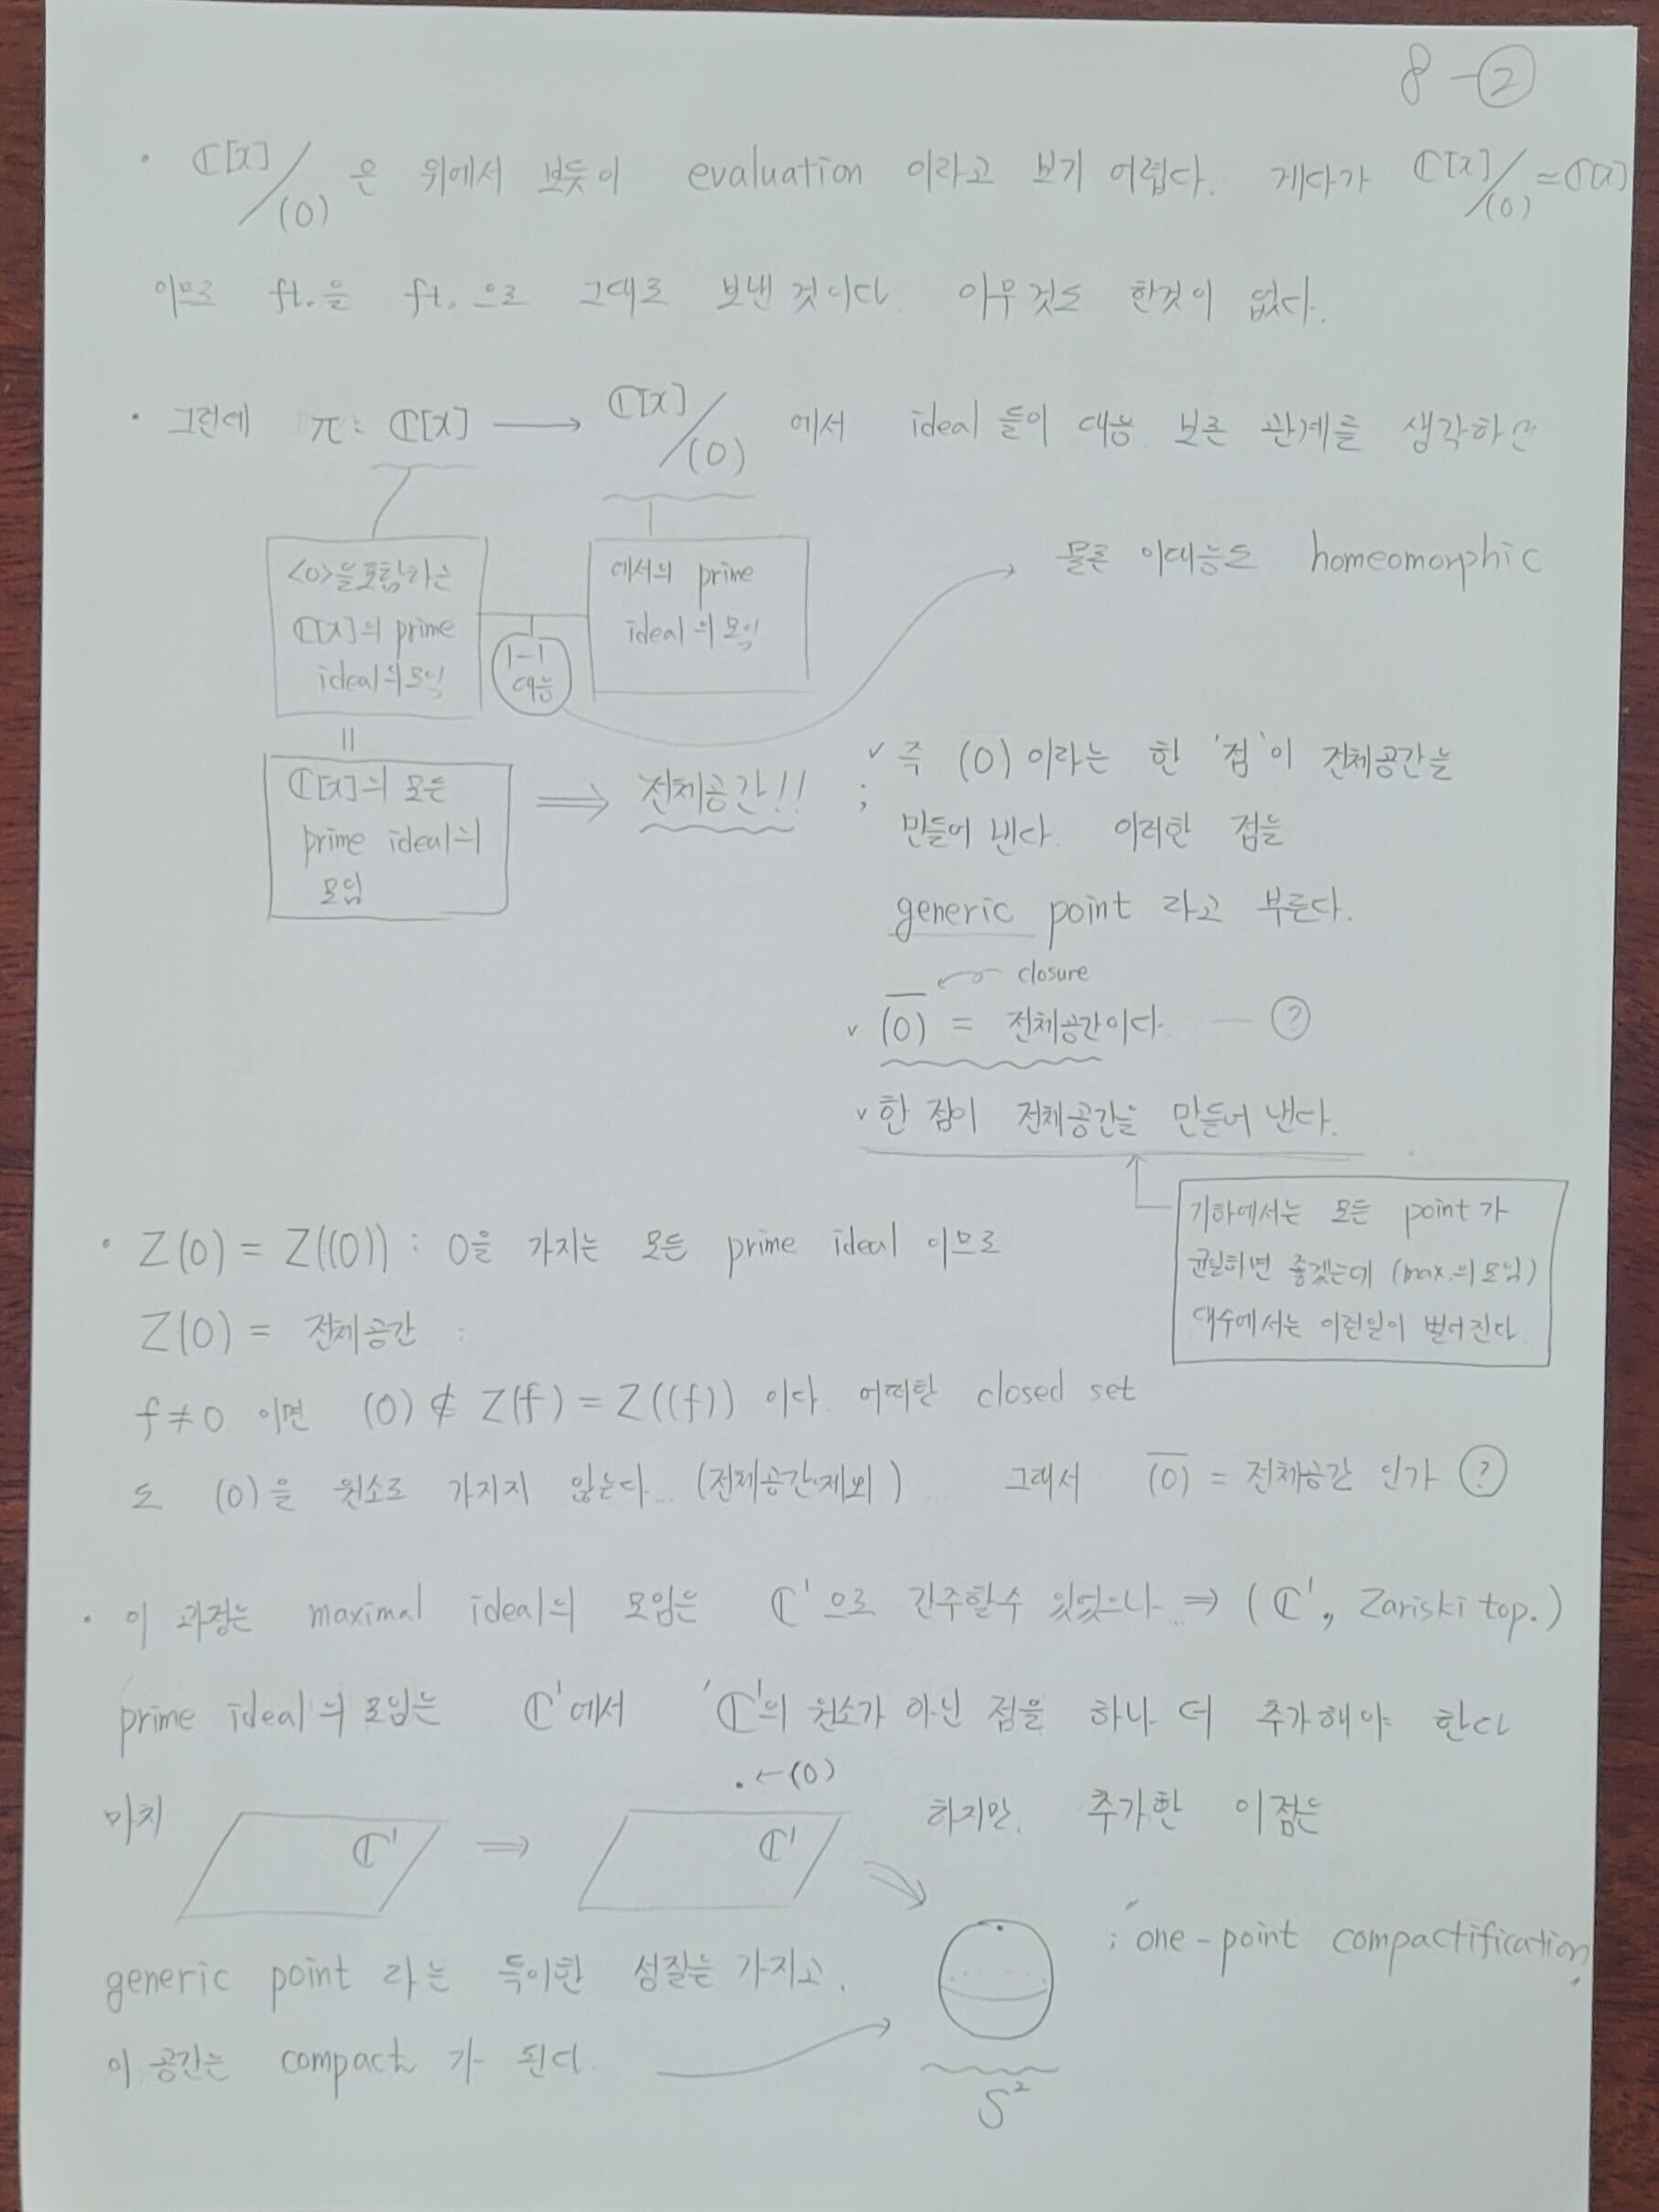 8-②
· ℂ[x]/(0) 은 위에서 보듯이 evaluation 이라고 보기 어렵다. 게다가 ℂ[x]/(0) = ℂ[x]
이므로 ft.을 ft.으로 그대로 보낸 것이다. 아무것도 한것이 없다.
· 그런데 π: ℂ[x] ⟶ ℂ[x]/(0) 에서 ideal 들이 대응 되는 관계를 생각하면
<0>을포함하는
ℂ[x]의 prime
ideal의모임
1-1
대응
에서의 prime
ideal의 모임
물론 이대응도 homeomorphic
||
ℂ[x]의 모든
prime ideal의
모임
⟹ 전체공간!! ;
✓ 즉 (0) 이라는 한 '점'이 전체공간을
만들어 낸다. 이러한 점을
generic point 라고 부른다.
closure
✓ \overline{(0)} = 전체공간이다. — ?
✓ 한 점이 전체공간을 만들어 낸다.
기하에서는 모든 point가
균일하면 좋겠는데 (max.의 모임)
대수에서는 이런일이 벌어진다.
· Z(0) = Z((0)) : 0을 가지는 모든 prime ideal 이므로
Z(0) = 전체공간 :
f ≠ 0 이면 (0) ∉ Z(f) = Z((f)) 이다. 어떠한 closed set
도 (0)을 원소로 가지지 않는다... (전체공간제외) .. 그래서 \overline{(0)} = 전체공간 인가 ?
· 이 과정은 maximal ideal의 모임은 ℂ¹으로 간주할수 있었으나... ⇒ (ℂ¹, Zariski top.)
prime ideal의 모임는 ℂ¹에서 'ℂ¹의 원소가 아닌 점을 하나 더 추가해야 한다
마치 ℂ¹ ⇒ ℂ¹ · ← (0) 하지만. 추가한 이 점은
generic point 라는 특이한 성질은 가지고.
; one-point compactification.
이 공간는 compact 가 된다.
S²